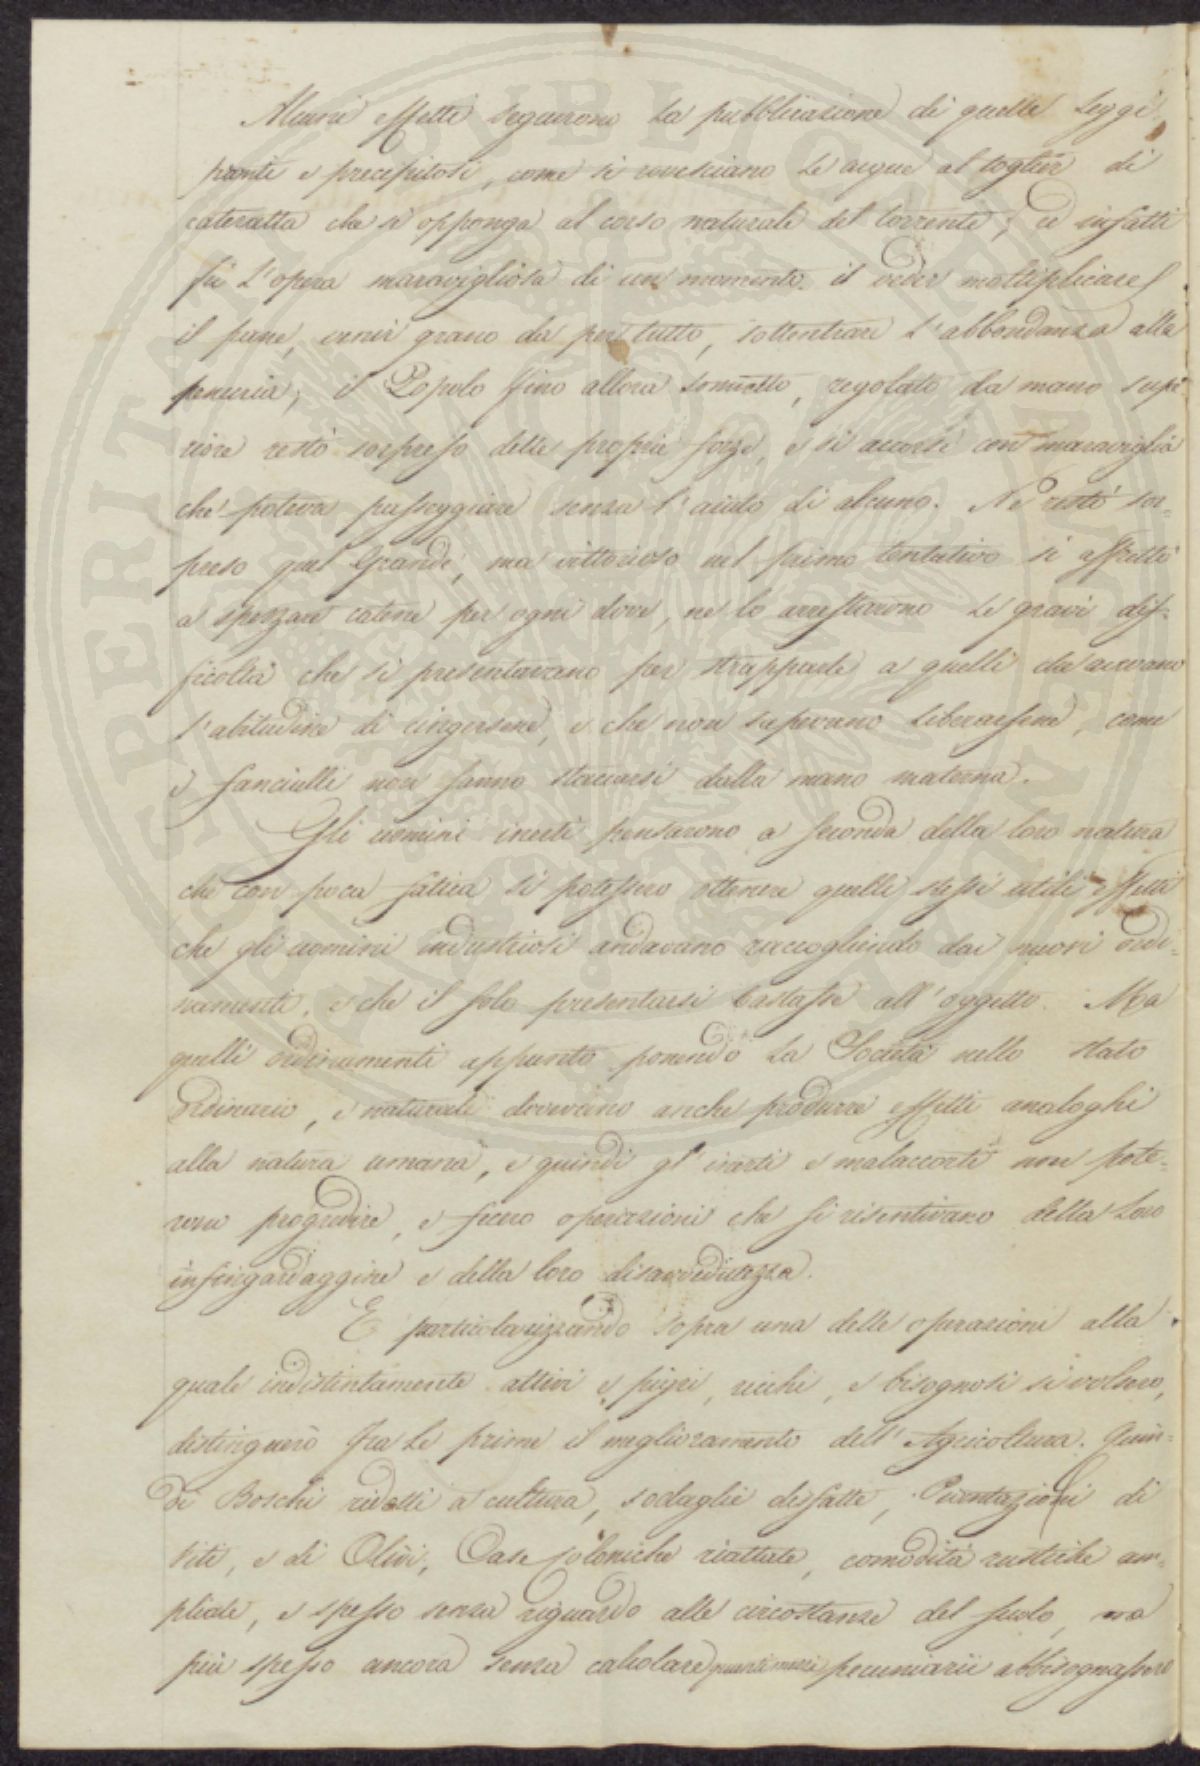 Alcuni effetti seguirono la pubblicazione di quelle Leggi
pronti e precipitosi, come si rovesciano le acque al toglier di
cateratta che si opponga al corso naturale del torrente; ed infatti
fù l'opera maravigliosa di un momento il veder moltiplicare
il pane, venir grano da per tutto, sottentrare l'abbondanza alla
penuria; il Popolo fino allora sommesso, regolato da mano supe-
riore restò sorpreso delle proprie forze, e si accorse con maraviglia
che poteva passeggiare senza l'aiuto di alcuno. Nè restò sor-
preso quel Grande, ma vittorioso nel primo tentativo si affrettò
a spezzare catene per ogni dove, ne lo arrestarono le gravi dif-
ficoltà che si presentavano per strapparle a quelli che avevano
l'abitudine di cingersene, e che non sapevano liberarsene, come
i fanciulli non sanno staccarsi dalla mano materna.
Gli uomini inerti pensarono a seconda della loro natura
che con poca fatica si potessero ottenere quelli stessi utili effetti
che gli uomini industriosi andavano raccogliendo dai nuovi ordi-
namenti, e che il solo presentarsi bastasse all'oggetto. Ma
quelli ordinamenti appunto ponendo la Società nello stato
ordinario, e naturale dovevano anche produrre effetti analoghi
alla natura umana, e quindi gl'inerti e malaccorti non pote-
rono progredire, e fecero operazioni che si risentivano della loro
infingardaggine e della loro disavvedutezza.
E particolarizzando sopra una delle operazioni alla
quale indistintamente attivi e pigri, ricchi, e bisognosi si volsero,
distinguerò fra le prime il miglioramento dell'Agricoltura. Quin-
di Boschi ridotti a cultura, sodaglie disfatte, Piantazioni di
Viti, e di Olivi, Case coloniche riattate, comodità rustiche am-
pliate, e spesso senza riguardo alle circostanze del suolo, ma
più spesso ancora senza calcolare quanti mezzi pecuniarii abbisognassero